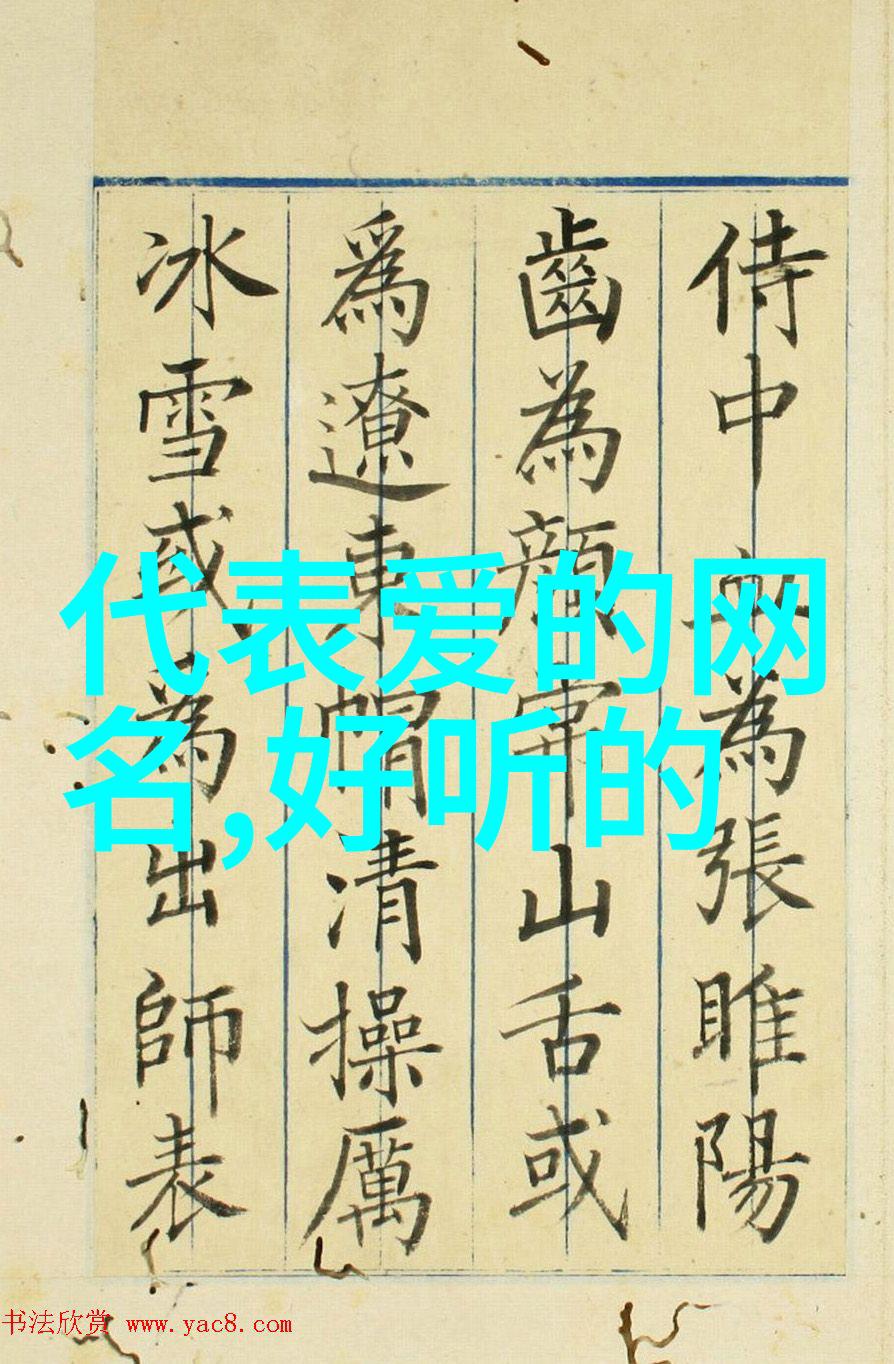 侍中為張睢陽
齒為顏山舌或
爲遼東帽清操厲
冰雪或為出師表
代表爱的网
名,好听的
书法欣赏 www.yac8.com